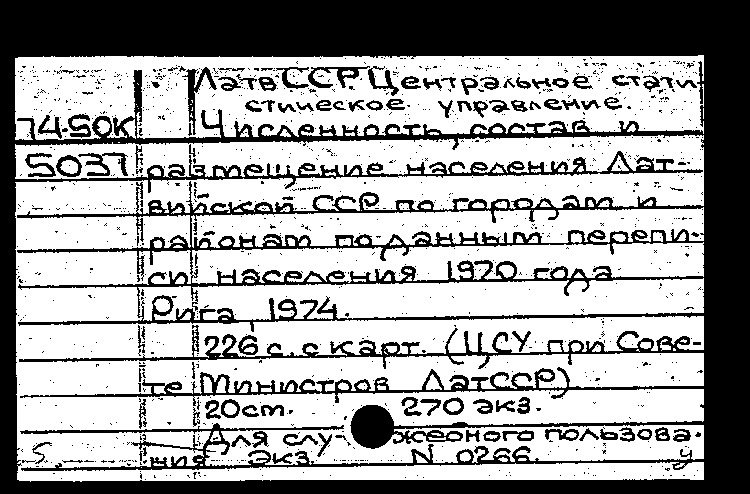 ЛатвССР. Центральное стати-
стическое управление.
74-50К Численность, состав и
5037 размещение населения Лат-
вийской ССР по городам и
районам по данным перепи-
си населения 1970 года
Рига, 1974.
226 с. с карт. (ЦСУ при Сове-
те Министров ЛатССР)
20см. 270 экз.
Для служебного пользова-
ния Экз. N 0266.